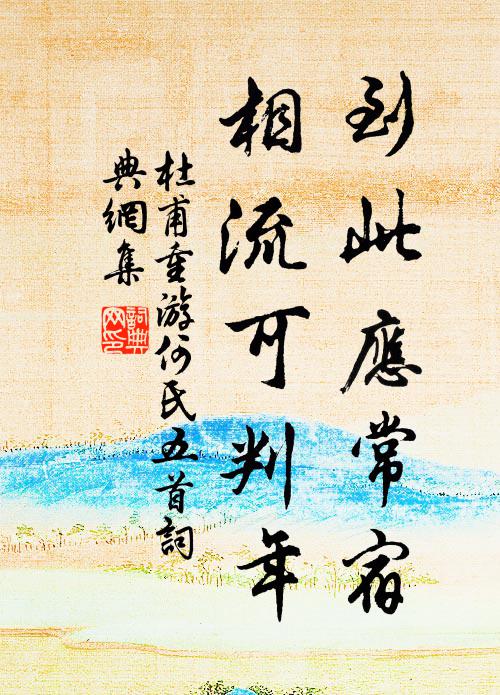 到此應常宿
相流可判年
杜甫重游何氏五首詞
典網集
詞典
网印